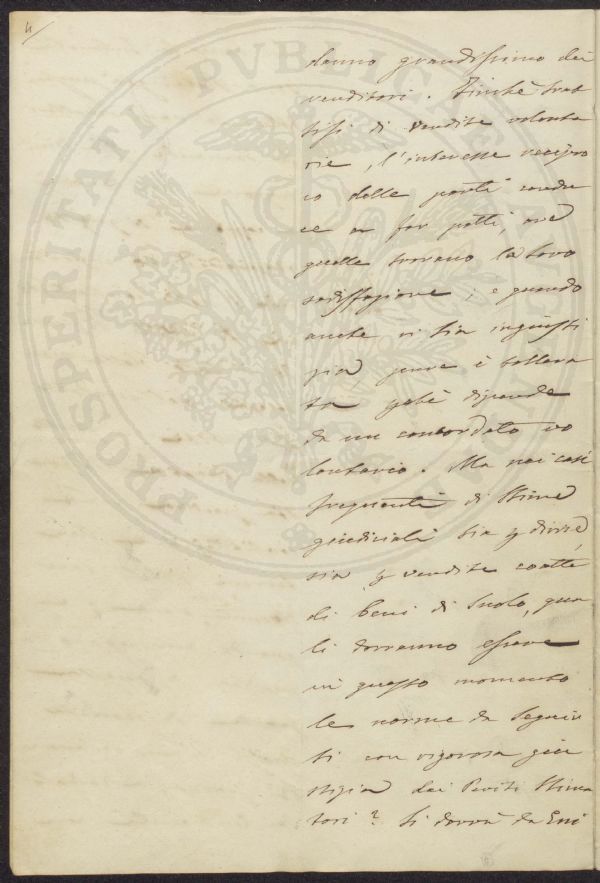 4
danno grandissimo dei
venditori. Finchè trat
tisi di vendite volonta
rie, l'interesse recipro
co delle parti condu
ce a far patti, ove
quelle trovano la loro
sodisfazione; e quando
anche vi sia ingiusti
zia, pure è tollera
ta pchè dipende
da un concordato vo
lontario. Ma nei casi
frequenti di stime
giudiziali sia p divise,
sia p vendite coatte
di beni di suolo, qua
li dovranno essere
in questo momento
le norme da seguir
si con rigorosa giu
stizia dai Periti Stima
tori? Si dovrà da essi
PROSPERITATI PVBLICAE